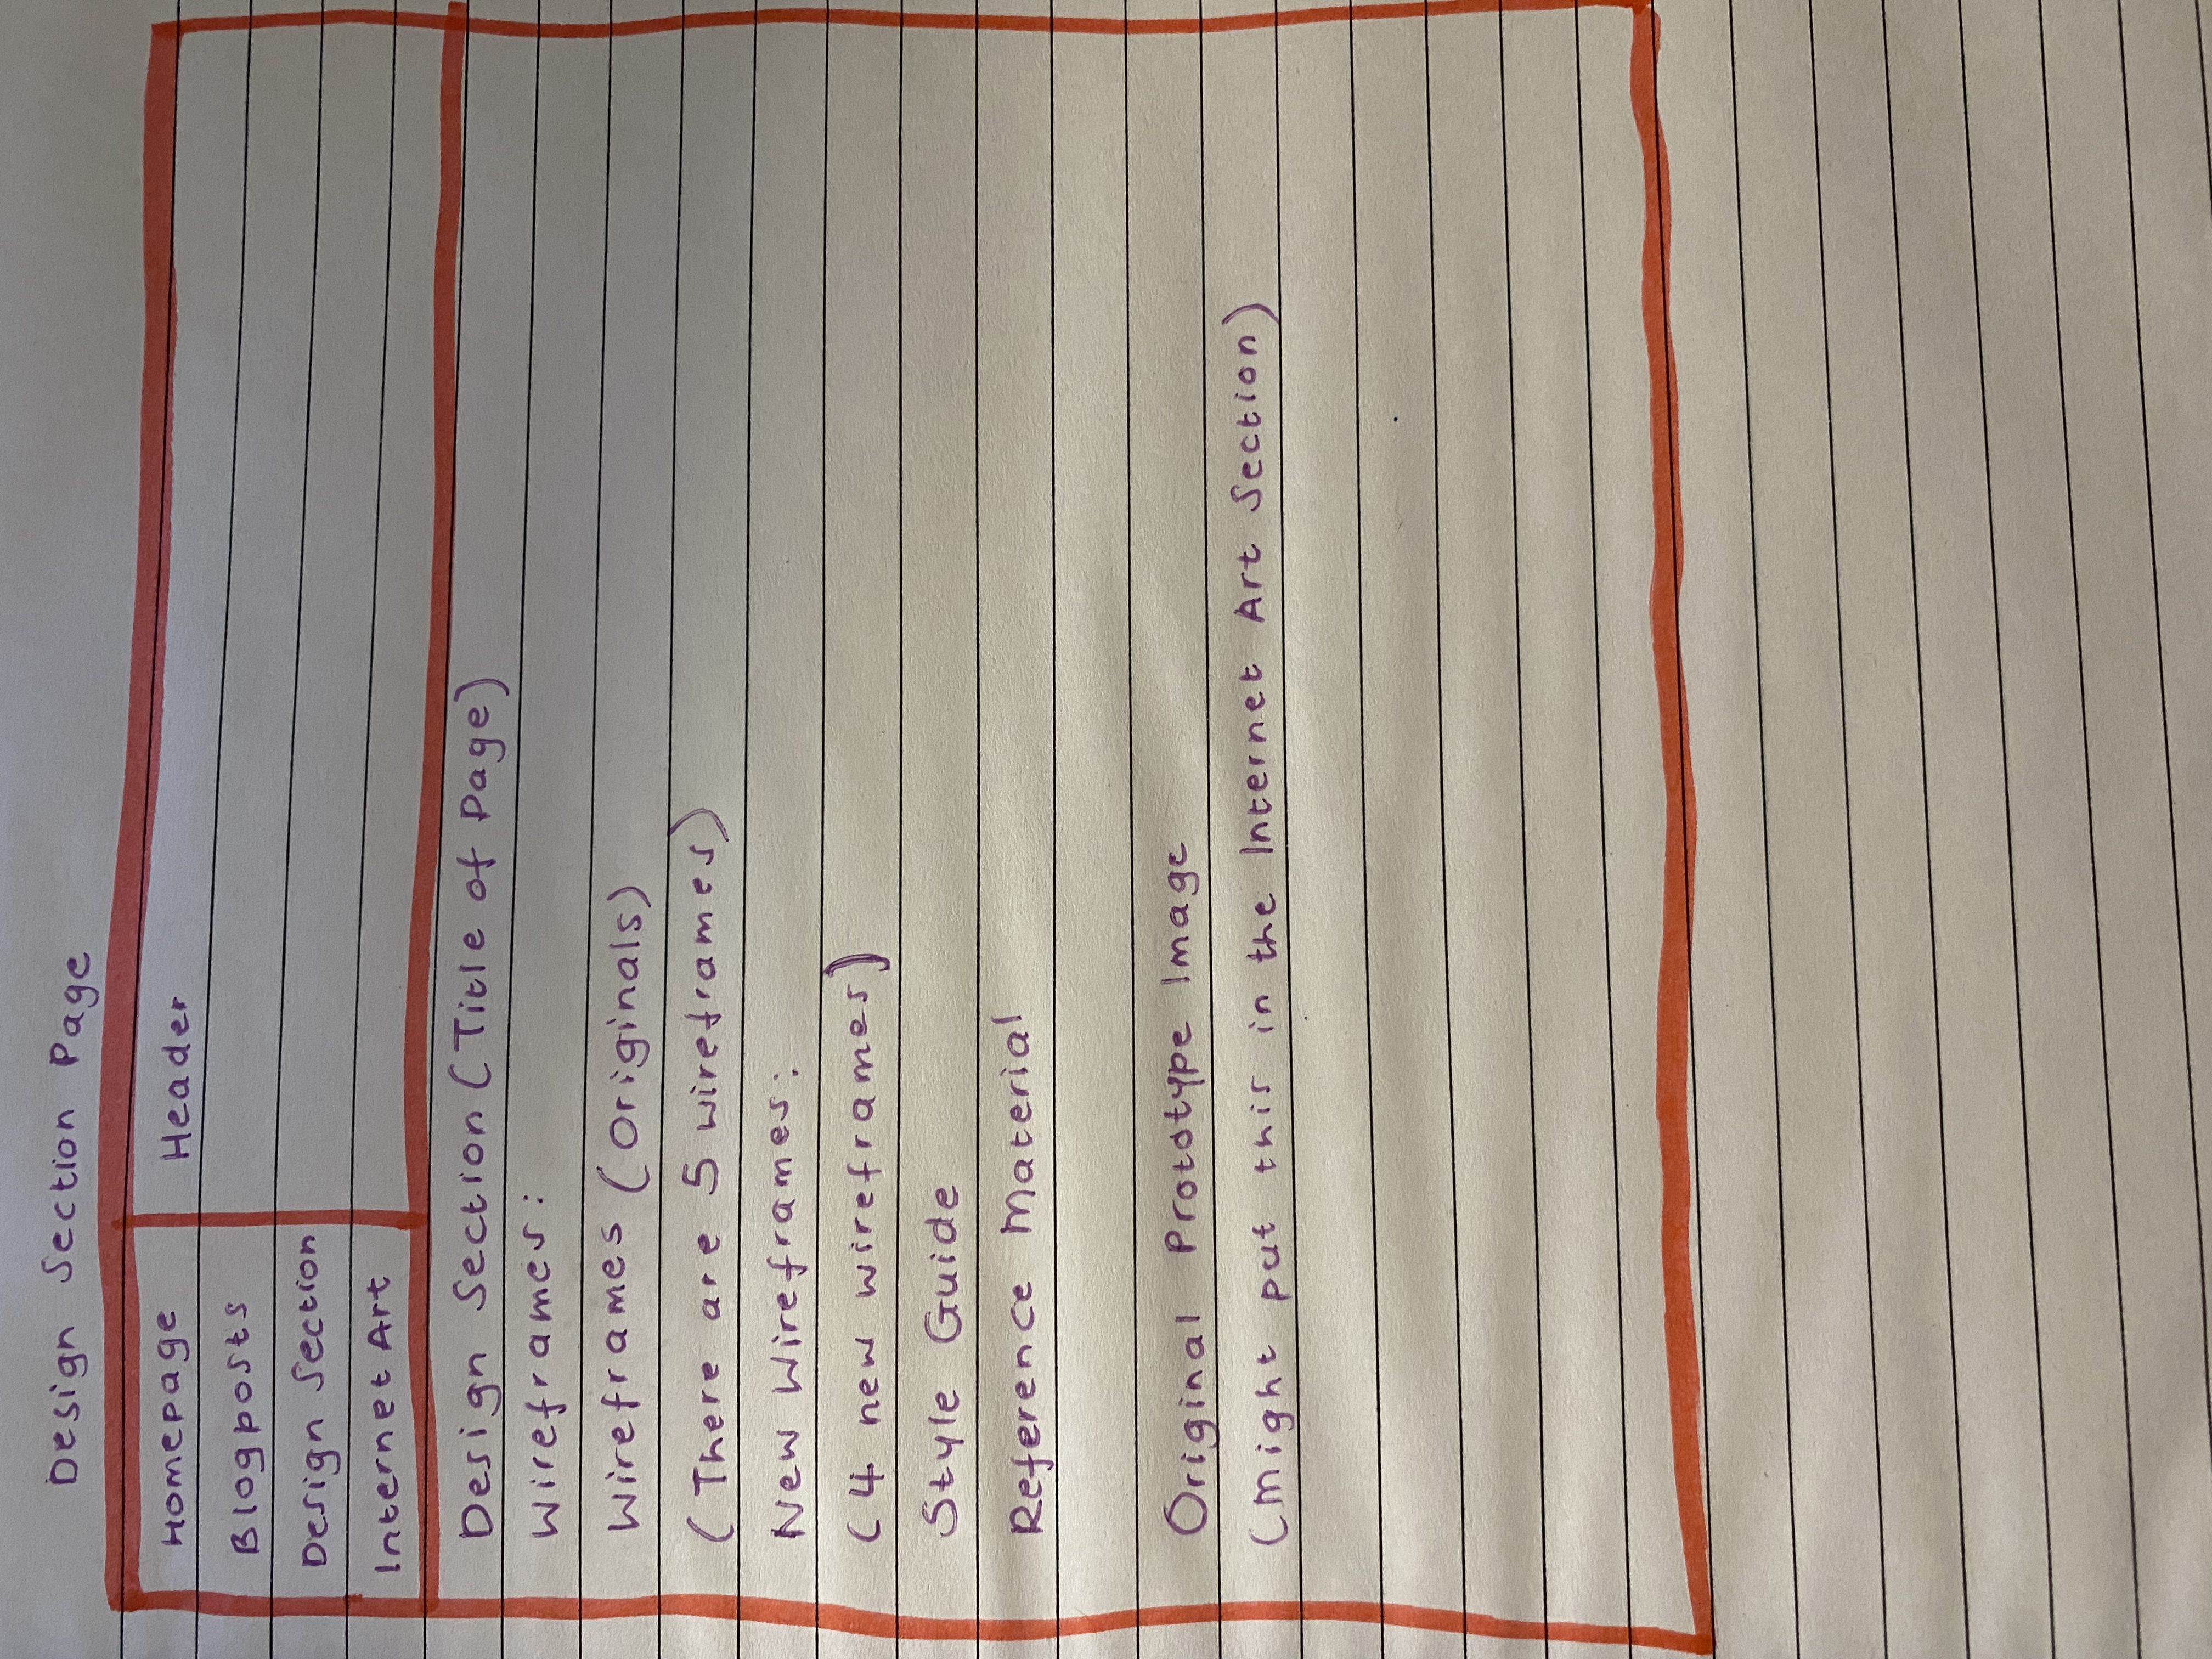 Design Section Page
Homepage
Header
Blogposts
Design Section
Internet Art
Design Section (Title of Page)
Wireframes:
Wireframes (Originals)
(There are 5 wireframes)
New Wireframes:
(4 new wireframes)
Style Guide
Reference Material
Original Prototype Image
(Might put this in the Internet Art Section)